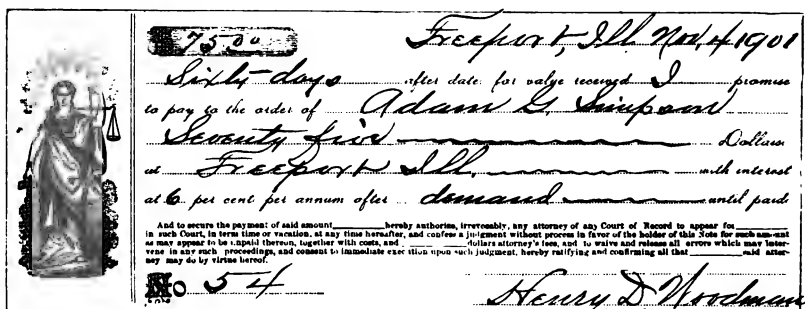 75.00 Freeport, Ill. Nov. 4 1901
Sixty days after date for value received I promise
to pay to the order of Adam G. Simpson
Seventy five Dollars
at Freeport Ill. with interest
at 6 per cent per annum after demand until paid
And to secure the payment of said amount hereby authorize, irrevocably, any attorney of any Court of Record to appear for
in such Court, in term time or vacation, at any time hereafter, and confess a judgment without process in favor of the holder of this Note for such amount
as may appear to be unpaid thereon, together with costs, and dollars attorney's fees, and to waive and release all errors which may inter-
vene in any such proceedings, and consent to immediate execution upon such judgment, hereby ratifying and confirming all that said attor-
ney may do by virtue hereof.
No 54 Henry D Woodman